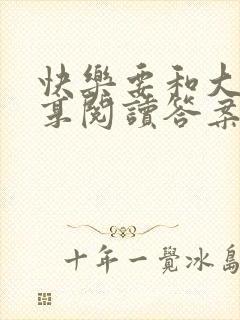 快樂要和大
享閱讀答案
十年一覺冰島